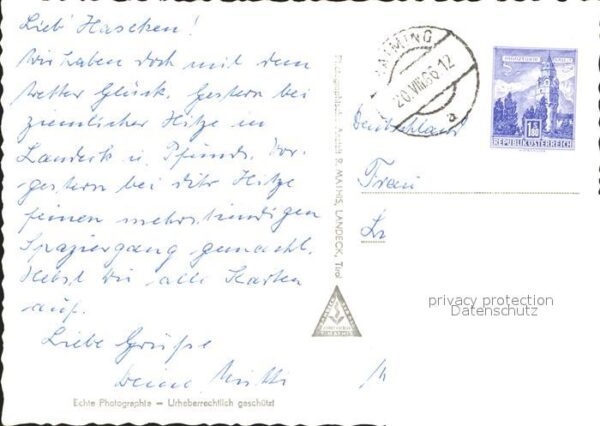 Lieb' Haschen!
Wir haben doch mit dem
Wetter Glück. Gestern bei
ziemlicher Hitze in
Landeck u. Pfunds. Vor-
gestern bei dito Hitze
feinen mehrstündigen
Spaziergang gemacht.
Hebst Du alle Karten
auf.
Liebe Grüße
Deine Mutti
Echte Photographie – Urheberrechtlich geschützt
R. MATHIS, LANDECK, Tirol
HAIMING
20.VIII.66-12
a
REPUBLIK ÖSTERREICH
Deutschland
Frau
privacy protection
Datenschutz